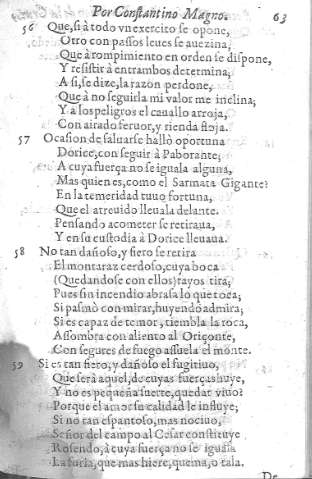 Por Constantino Magno. 63
56 Que, si à todo vn exercito se opone,
Otro con passos leues se auezina,
Que à rompimiento en orden se dispone,
Y resistir à entrambos determina;
A si, se dize, la razon perdone,
Que à no seguirla mi valor me inclina;
Y a los peligros el cauallo arroja,
Con airado feruor, y rienda floja.
57 Ocasion de saluarse hallò oportuna
Dorice, con seguir à Paborante;
A cuya fuerça no se iguala alguna,
Mas quien es, como el Sarmata Gigante?
En la temeridad tuuo fortuna,
Que el atreuido lleuala delante.
Pensando acometer se retiraua,
Y en su custodia à Dorice lleuaua.
58 No tan dañoso, y fiero se retira
El montaraz cerdoso, cuya boca
(Quedandose con ellos) rayos tira,
Pues sin incendio abrasa lo que toca;
Si pasmò con mirar, huyendo admira;
Si es capaz de temor, tiembla la roca,
Assombra con aliento al Oriçonte,
Con segures de fuego assuela el monte.
59 Si es tan fiero, y dañoso el fugitiuo,
Que serà aquel, de cuyas fuerças huye,
Y no es pequeña suerte, quedar viuo?
Porque el amor su calidad le influye;
Si no tan espantoso, mas nociuo,
Señor del campo al Cesar constituye
Rosendo, à cuya fuerça no se iguala
La furia, que mas hiere, quema, o tala.
De